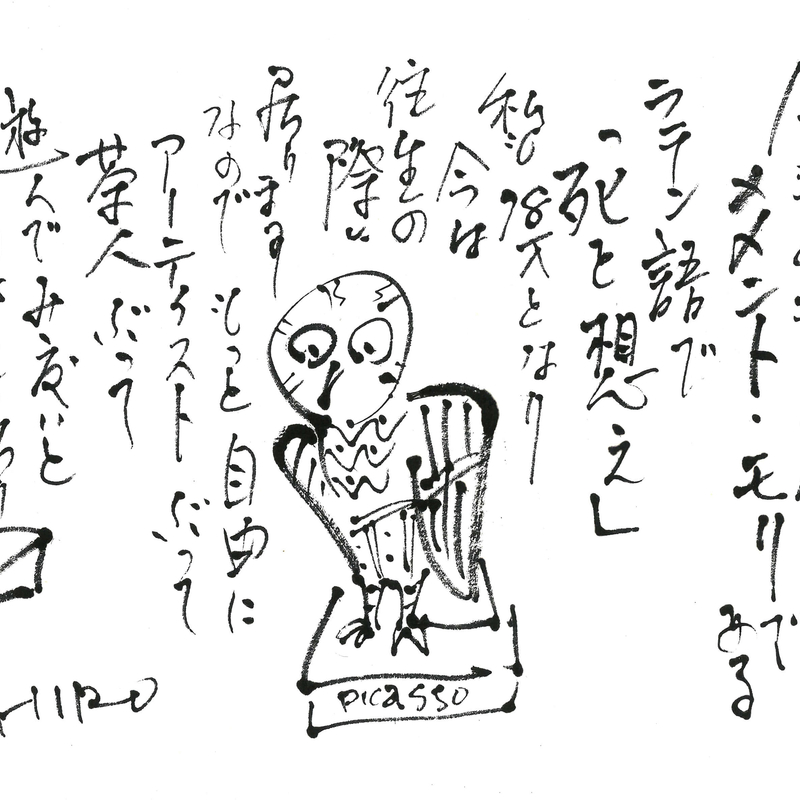 メメント・モリで
ある
ラテン語で
「死を想え」
私も78才となり
今は
往生の
際に
居ります
なので もっと自由に
アーティストぶって
茶人ぶって
遊んでみ度いと
PICASSO